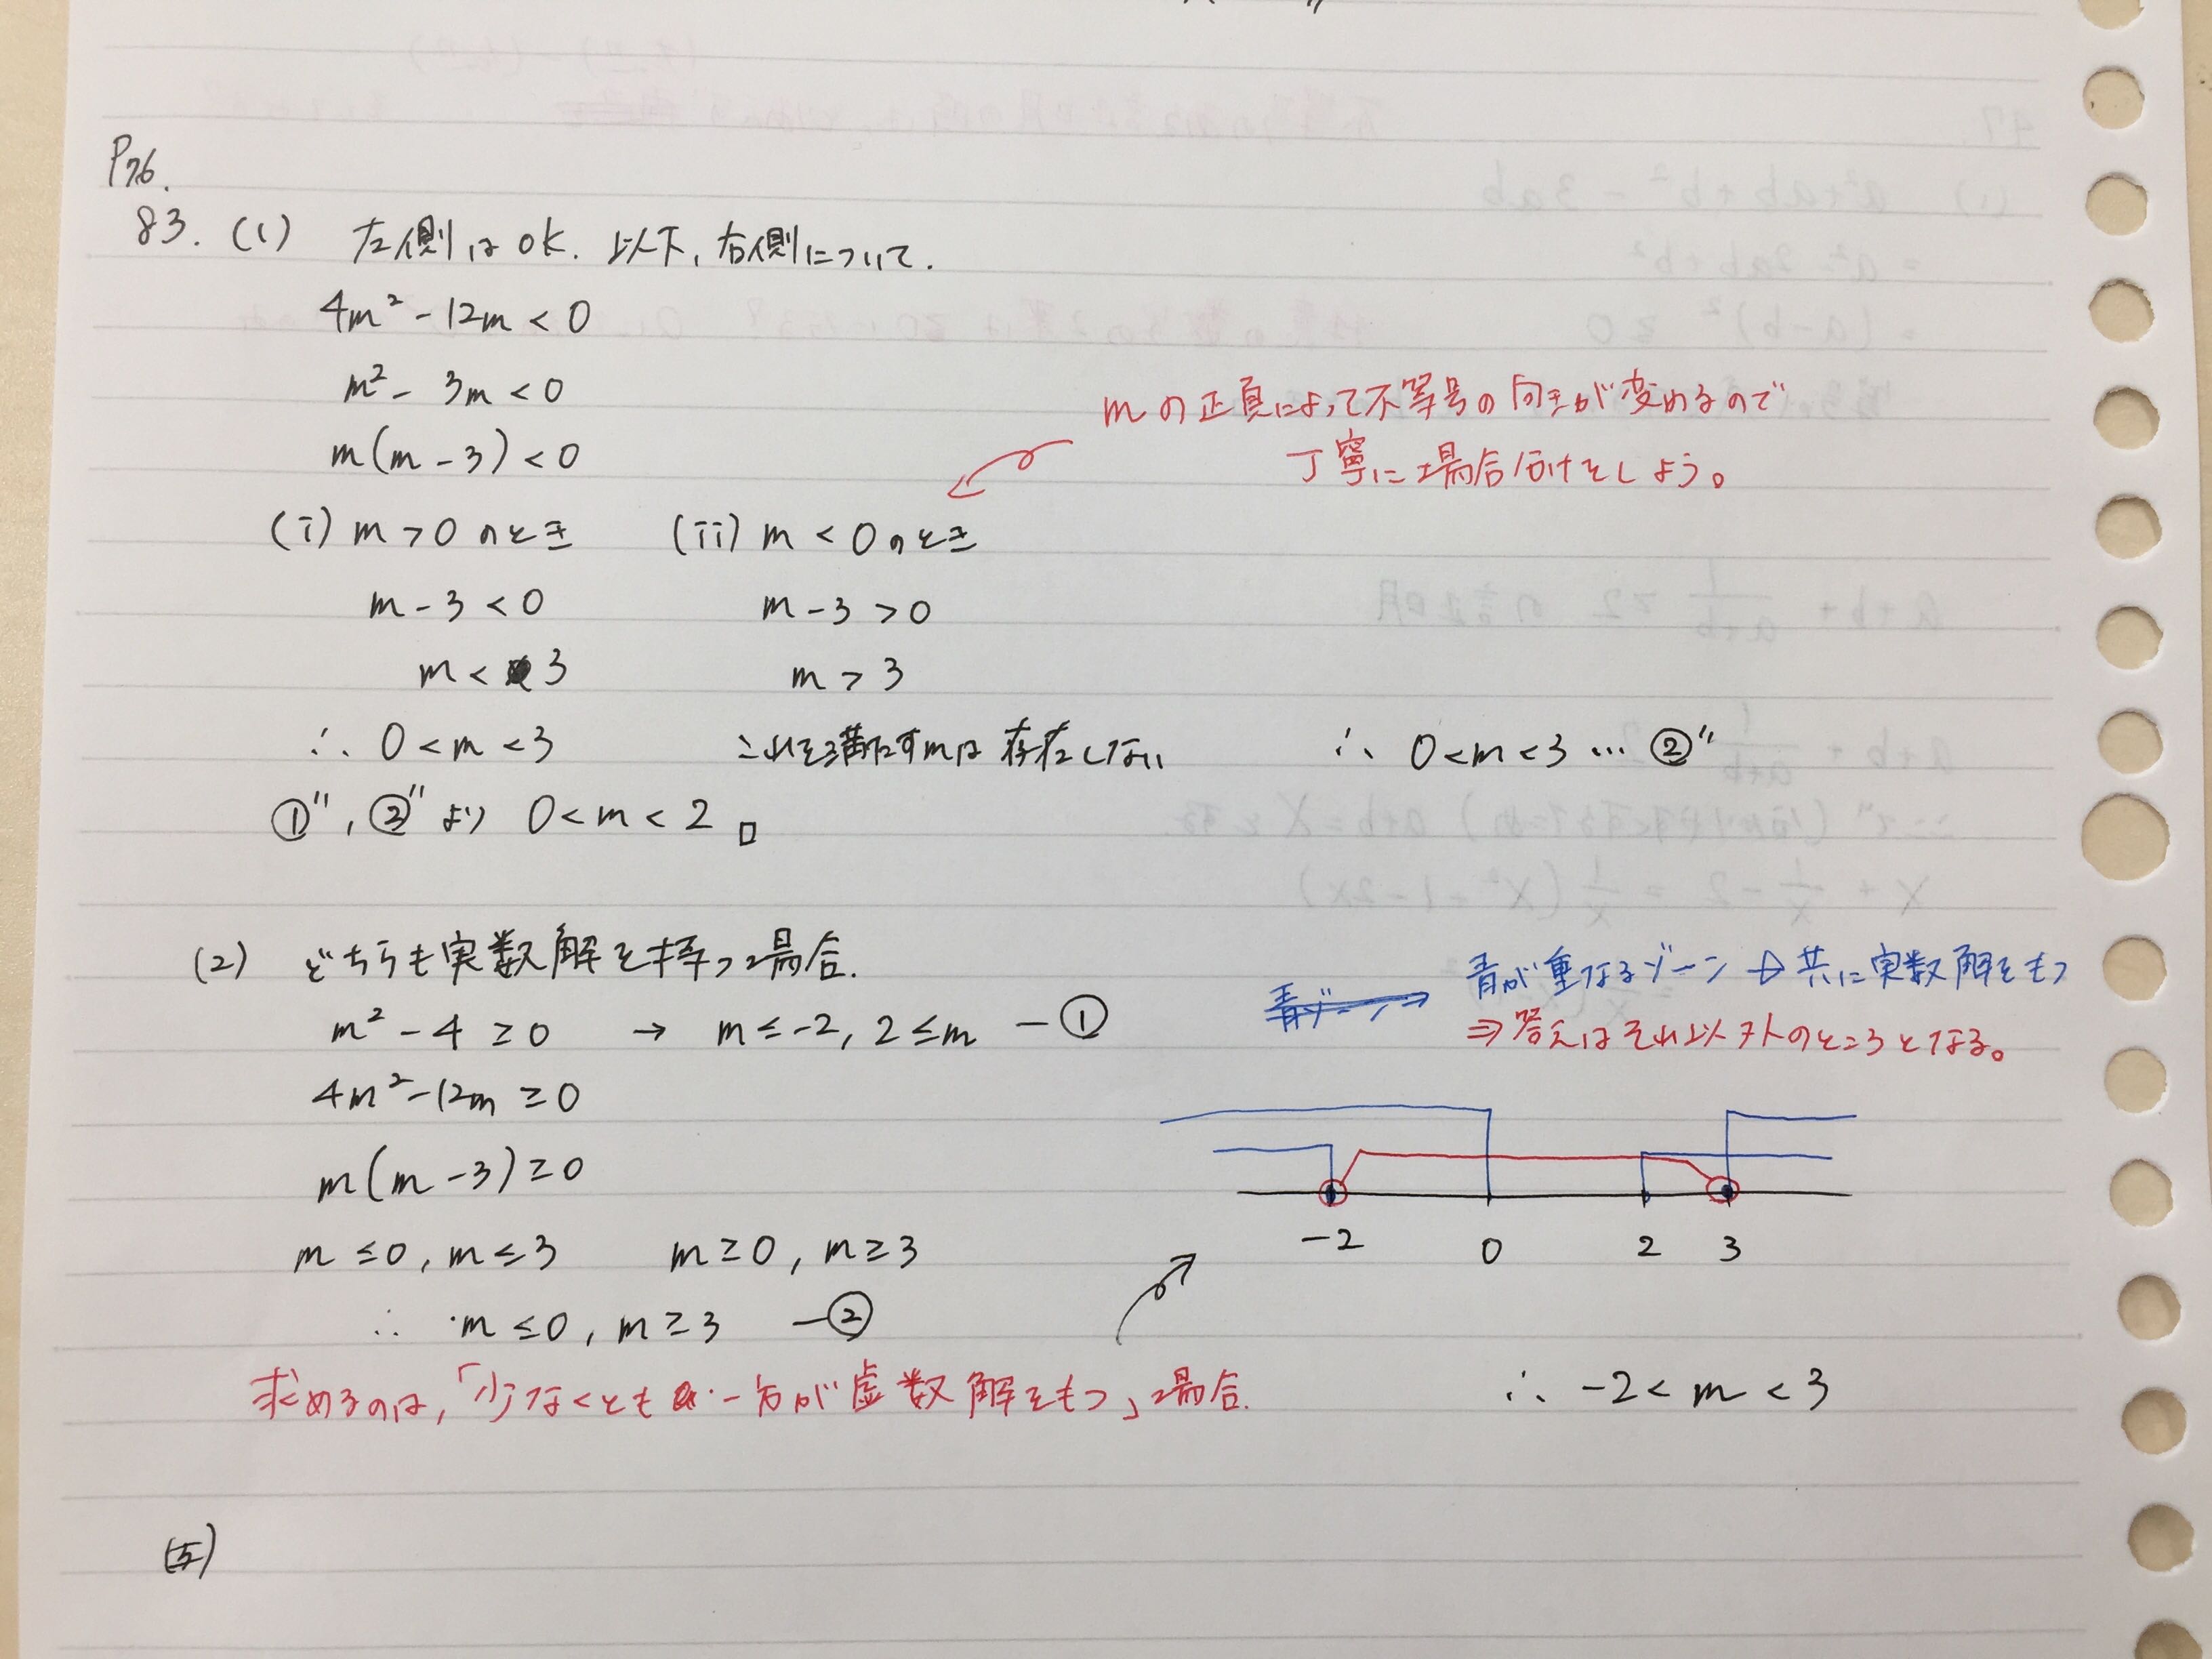 P76.
83. (1) 左側はOK. 以下, 右側について.
4m² - 12m < 0
m² - 3m < 0
m(m - 3) < 0
mの正負によって不等号の向きが変めるので
丁寧に場合分けをしよう。
(i) m > 0 のとき
m - 3 < 0
m < 3
∴ 0 < m < 3
(ii) m < 0 のとき
m - 3 > 0
m > 3
これを満たすmは存在しない
∴ 0 < m < 3 … ②"
①", ②" より 0 < m < 2 □
(2) どちらも実数解を持つ場合.
m² - 4 ≥ 0 → m ≤ -2, 2 ≤ m — ①
4m² - 12m ≥ 0
m(m - 3) ≥ 0
m ≤ 0, m ≤ 3 m ≥ 0, m ≥ 3
∴ m ≤ 0, m ≥ 3 — ②
求めるのは,「少なくとも一方が虚数解をもつ」場合.
青が重なるゾーン → 共に実数解をもつ
⇒ 答えはそれ以外のところとなる。
-2 0 2 3
∴ -2 < m < 3